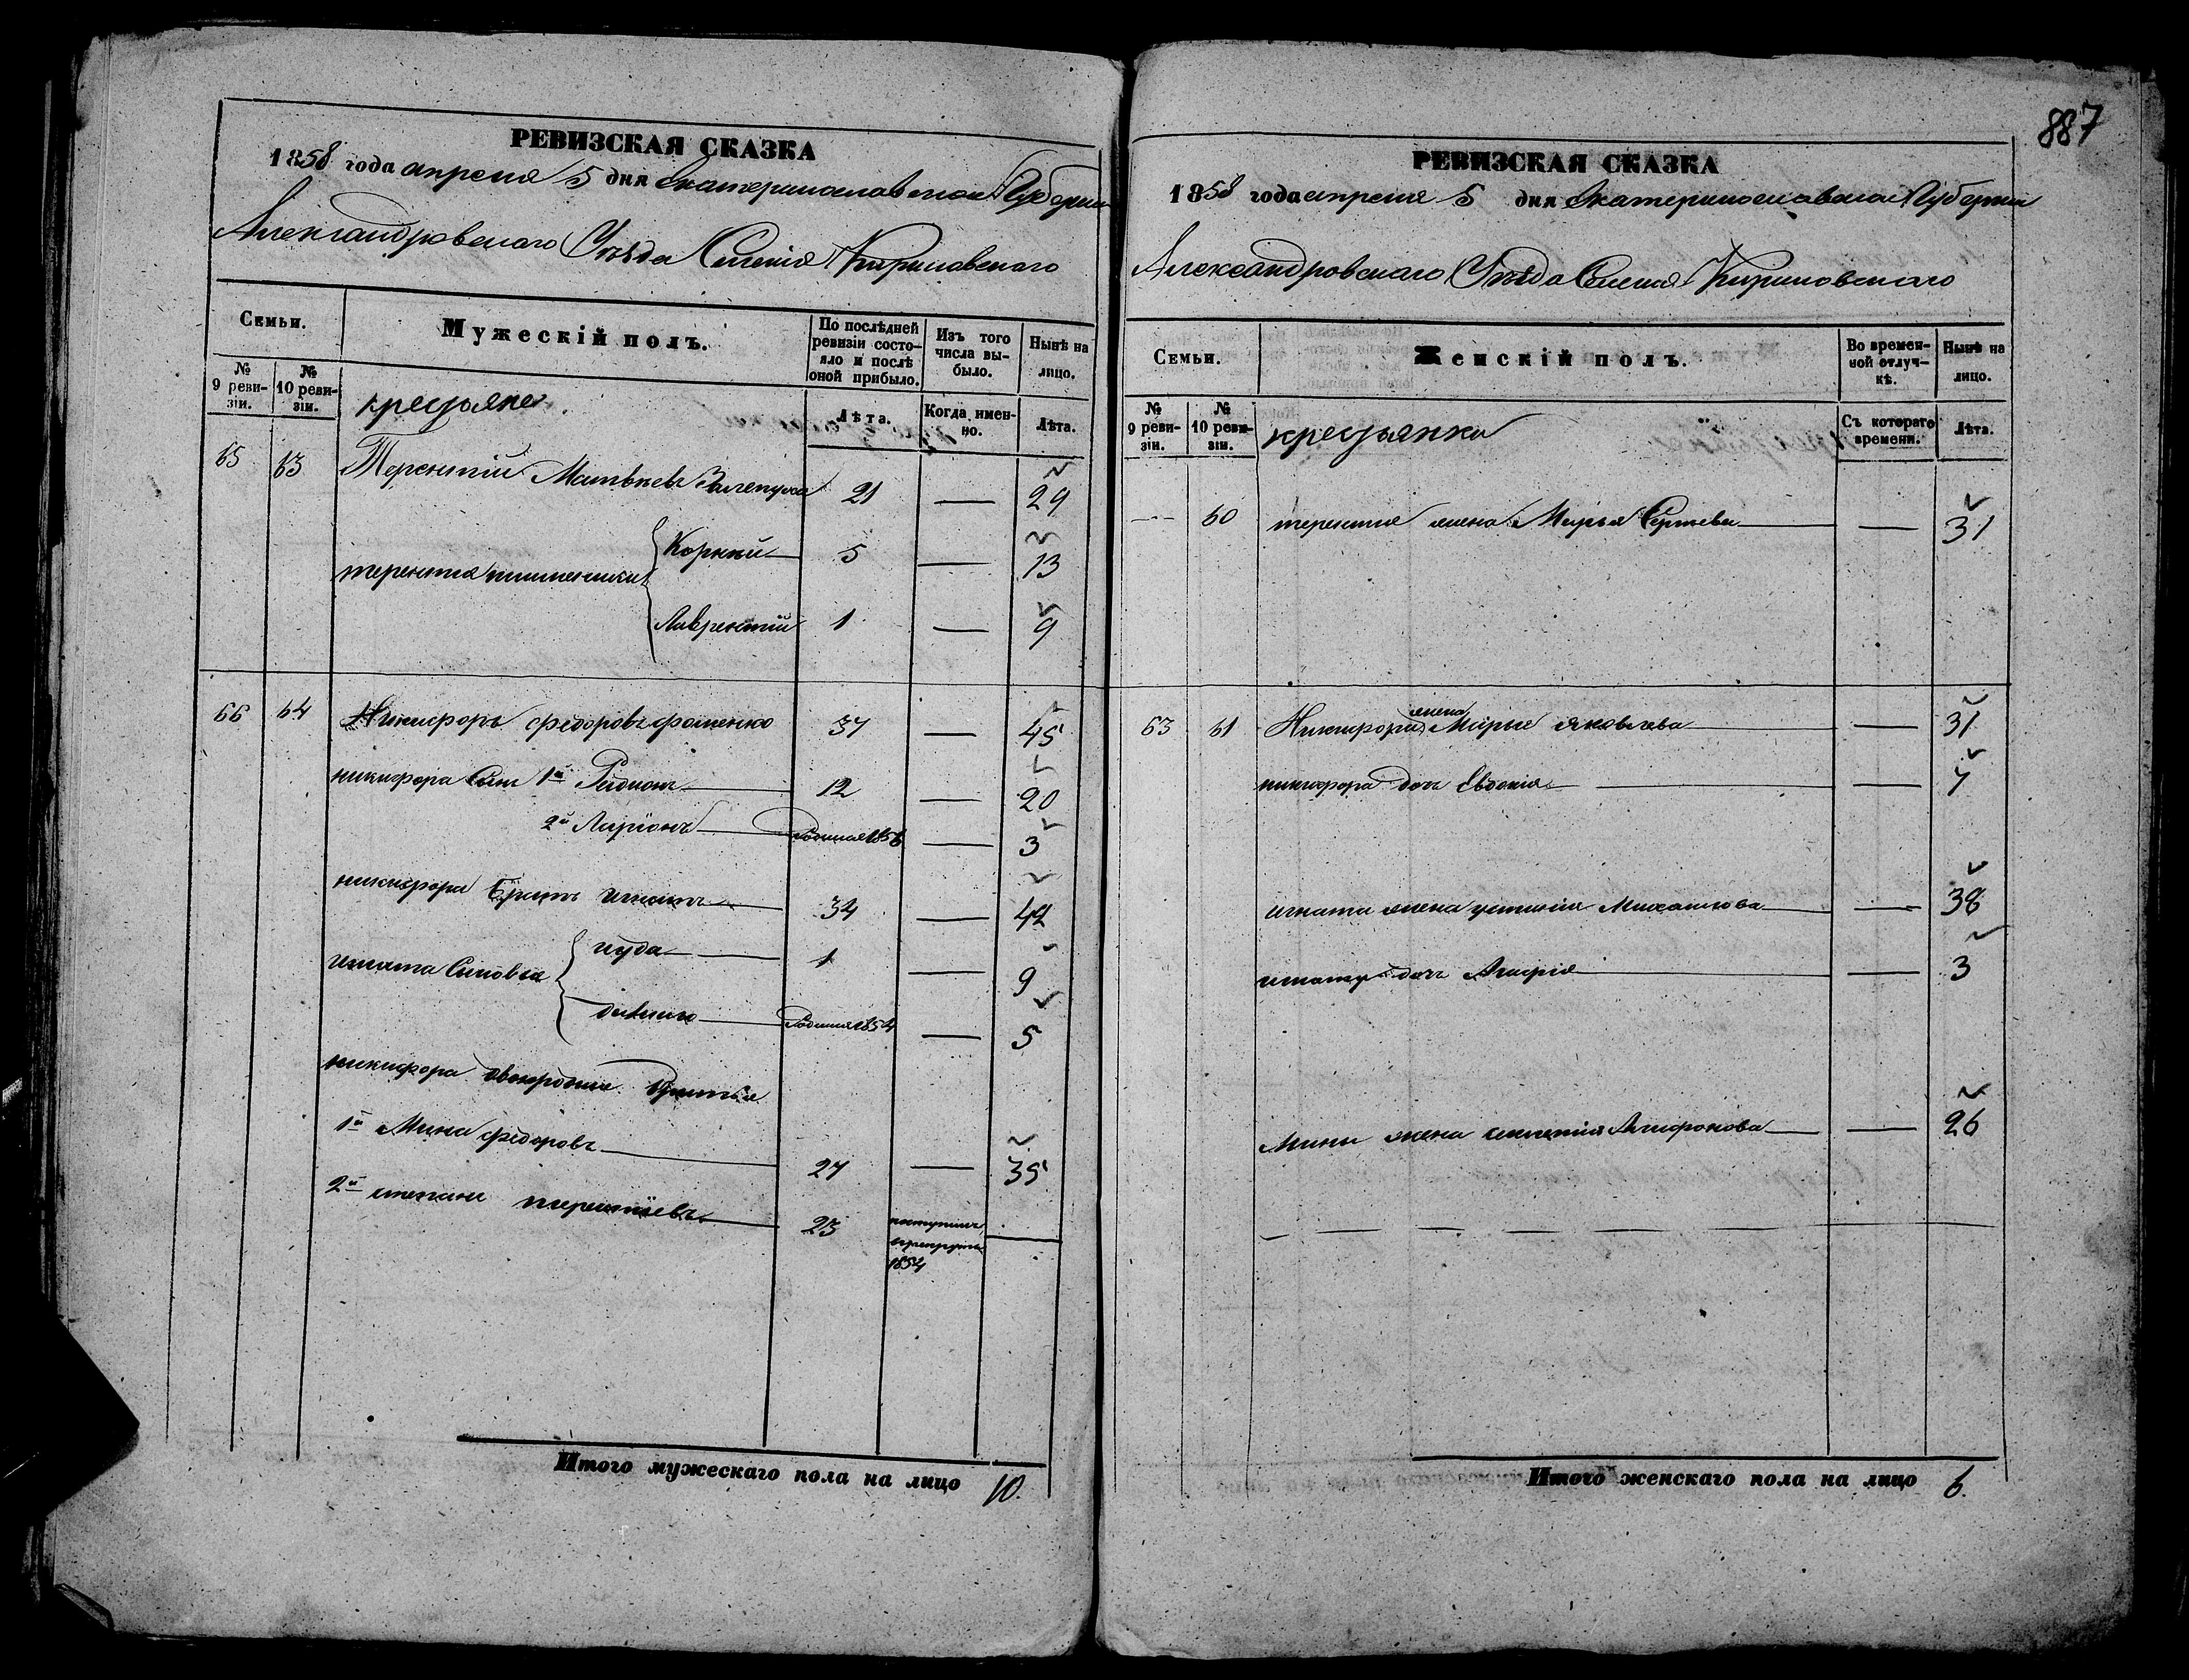 887
РЕВИЗСКАЯ СКАЗКА
1858 года апреля 5 дня Екатеринославской Губернии
Александровского Уезда Селения Кириловского
Семьи.
Мужескій полъ.
По послѣдней ревизіи состо-
яло и послѣ
оной прибыло.
Изъ того
числа вы-
было.
Нынѣ на
лицо.
№
9 реви-
зіи.
№
10 реви-
зіи.
крестьяне
Лѣта.
Когда имен-
но.
Лѣта.
65 63 Терентій Матвѣевъ 21 — 29
терентія племеники Корней 5 — 13
Лаврентій 1 — 9
66 64 Никифоръ федоровъ фоменко 37 — 45
никифора Сын 1й Родионъ 12 — 20
2й Ларіонъ 3
никифора Братъ игнатъ 34 — 42
игната Сыновья иуда 1 — 9
5
никифора двоюродные Братья
1й Мина федоровъ 27 — 35
2й степанъ терентіевъ 23 поступилъ
1854
Итого мужескаго пола на лицо 10.
РЕВИЗСКАЯ СКАЗКА
1858 года апреля 5 дня Екатеринославской Губернии
Александровского Уезда Селения Кириловского
Семьи.
Женскій полъ.
Во времен-
ной отлуч-
кѣ.
Нынѣ на
лицо.
№
9 реви-
зіи.
№
10 реви-
зіи.
крестьянки
Съ котораго
времени.
Лѣта.
— 60 терентія жена Марья Сергеева — 31
63 61 Никифора жена Марья яковлева — 31
никифора дочь Евдокия — 7
игната жена устинія Михаилова — 38
игнату дочь — 3
Мины жена — 26
Итого женскаго пола на лицо 6.